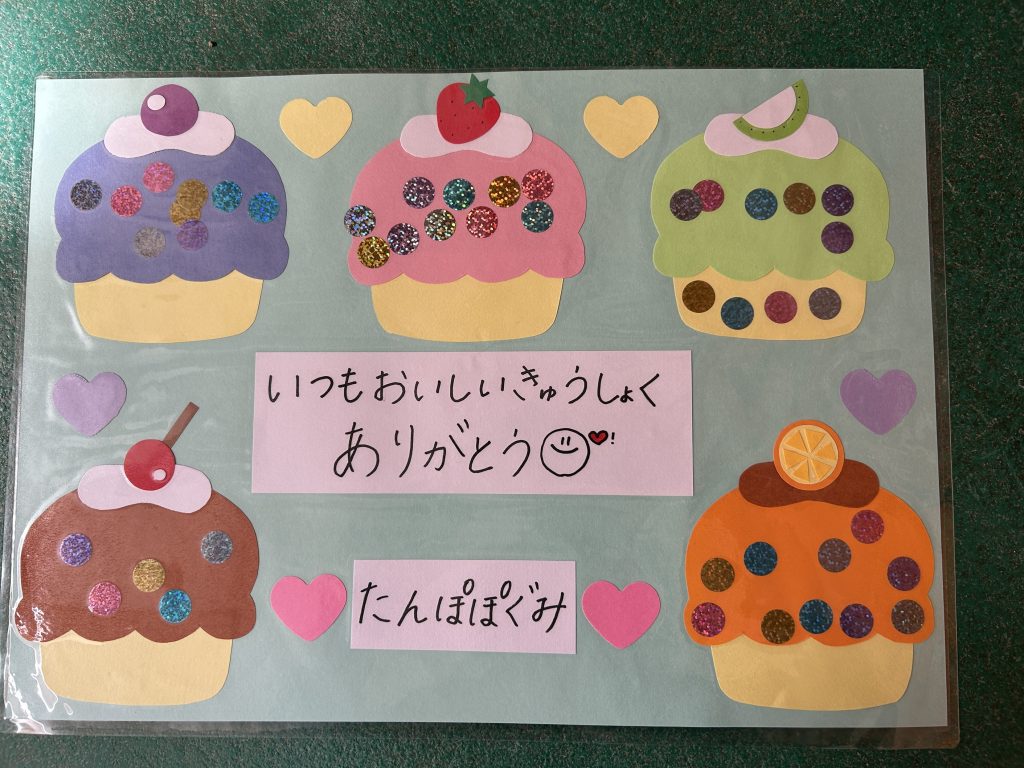 いつもおいしいきゅうしょく
ありがとう!
たんぽぽぐみ